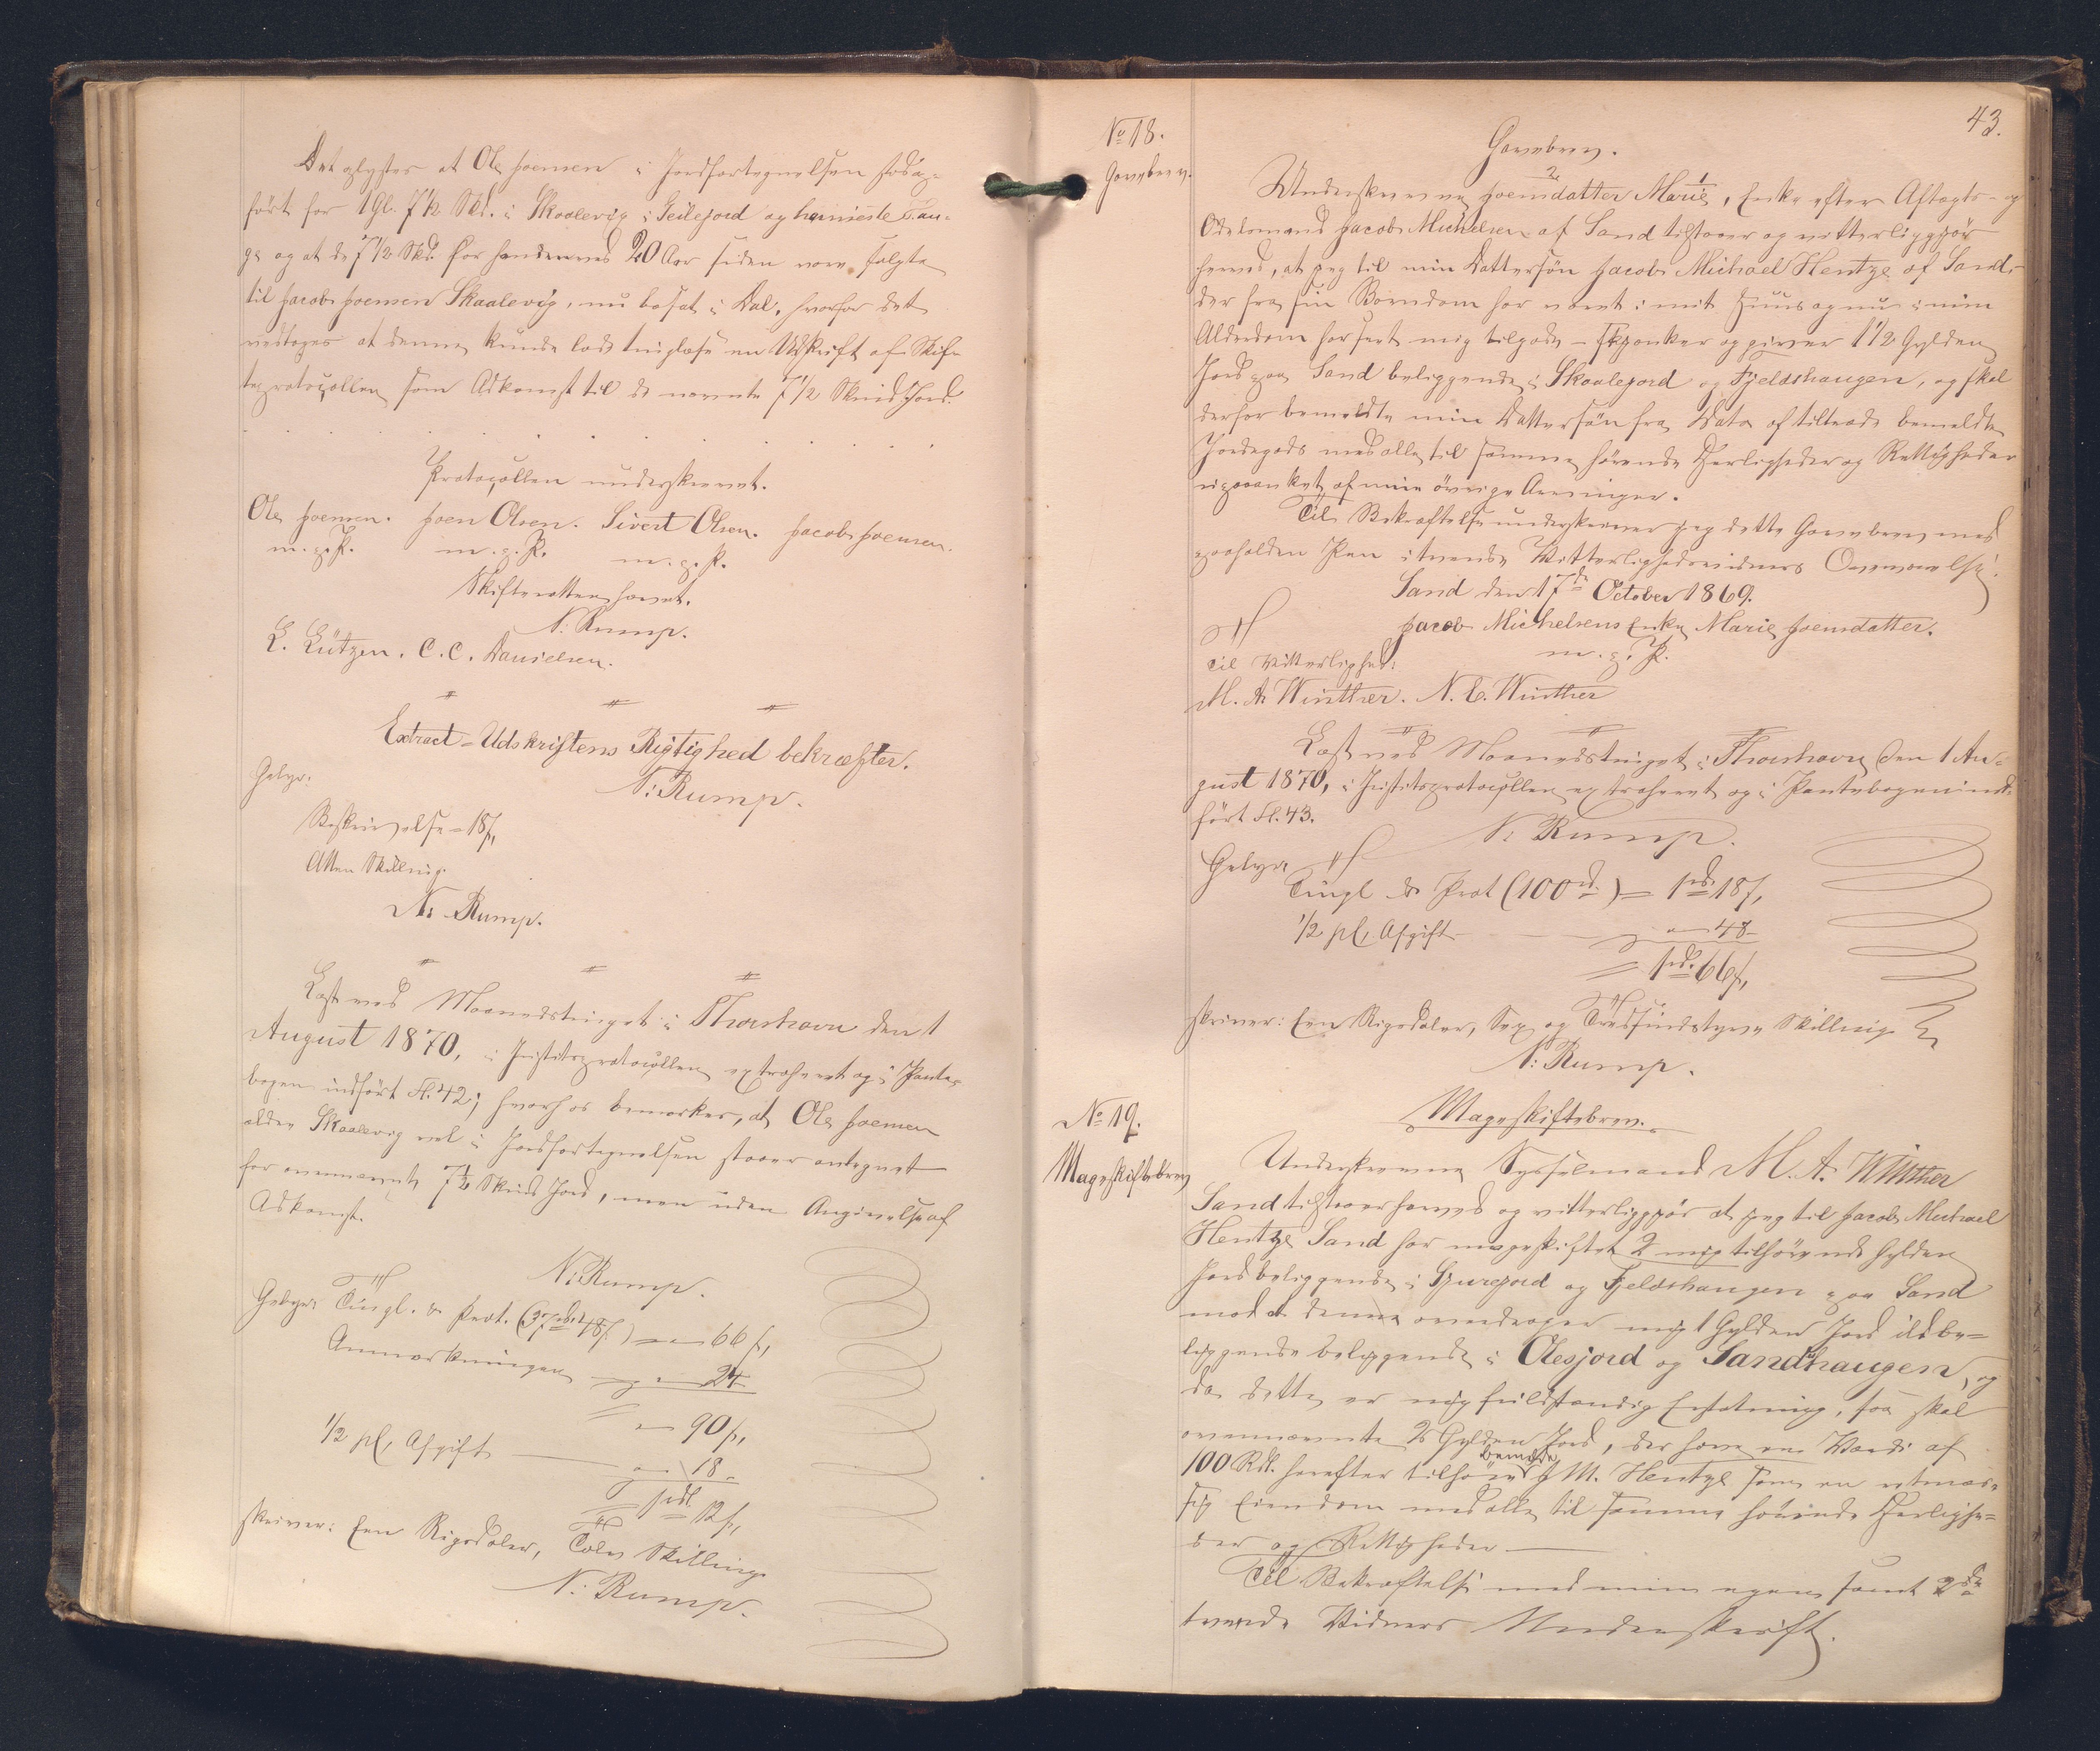 Det oplystes at Ole Joensen i Jordfortegnelsen staaer
ført for 1 Gl. 7 1/2 Skd. i Skaalevig i Geilejord og hans
og at de 7 1/2 Skd. for henved 20 Aar siden vare solgte
til Jacob Joensen Skaalevig, nu bosat i Dal, hvorfor det
vedtoges at denne kunde lade tinglæse en Udskrift af Skif-
teprotocollen som Adkomst til de nævnte 7 1/2 Skind Jord.
Protocollen underskrevet.
Ole Joensen. Joen Olsen. Sivert Olsen. Jacob Joensen.
m. p. P. m. p. P. m. p. P.
Skifteretten hævet.
N. Rump.
L. Lützen. C. C. Danielsen.
Extract-Udskriftens Rigtighed bekræfter.
N: Rump.
Gebyr:
Beskrivelse = 18 s,
Atten Skilling.
N: Rump.
Læst ved Maanedstinget i Thorshavn den 1
August 1870, i Justitsprotocollen extraheret og i Pante-
bogen indført Fl. 42; hvorhos bemærkes, at Ole Joensen
ældre Skaalevig vel i Jordfortegnelsen staaer antegnet
for ovennævnte 7 1/2 Skind Jord, men uden Angivelse af
Adkomst.
N: Rump.
Gebyr: Tingl. & Prot. (37 rd. 48 s) = 66 s,
Anmærkningen 24
= 90 s,
1/2 pCt. Afgift 18
= 1 rdl. 12 s,
skriver: Een Rigsdaler, Tolv Skilling
N: Rump.
43.
No 18.
Gavebrev.
Gavebrev.
Underskrevne Joensdatter Marie, Enke efter Aftægts- og
Odelsmand Jacob Michelsen af Sand tilstaaer og vitterliggjør
herved, at jeg til min Dattersøn Jacob Michael Hentze af Sand,
der fra sin Barndom har været i mit Huus og nu i min
Alderdom forsørt mig tilgode - skjenker og giver 1 1/2 Gylden
Jord paa Sand beliggende i Skaalejord og Fjeldshaugen, og skal
derfor bemeldte min Dattersøn fra Dato af tiltræde bemeldte
Jordegods med alle til samme hørende Herligheder og Rettigheder
upaaanket af mine øvrige Arvinger.
Til Bekræftelse underskriver jeg dette Gavebrev med
paaholden Pen i tvende Vitterlighedsvidners Overværelse.
Sand den 17de October 1869.
Jacob Michelsens Enke Marie Joensdatter.
m. p. P.
Til Vitterlighed:
M. A. Winther. N. C. Winther
Læst ved Maanedstinget i Thorshavn den 1 Au-
gust 1870, i Justitsprotocollen extraheret og i Pantebogen ind-
ført Fl. 43.
N: Rump.
Gebyr
Tingl & Prot (100 rd.) = 1 rd. 18 s,
1/2 pCt. Afgift 48
= 1 rd. 66 s,
skriver: Een Rigsdaler, Sex og Tredsindstyve Skilling
N: Rump.
No 19.
Mageskiftebrev
Mageskiftebrev.
Underskrevne Sysselmand M. A. Winther
Sand tilstaaer herved og vitterliggjør at jeg til Jacob Michael
Hentze Sand har mageskiftet 2 mig tilhørende Gylden
Jord beliggende i Gjurejord og Fjeldshaugen paa Sand
mod at denne overdrager mig 1 Gylden Jord ildbe-
liggende beliggende i Olesjord og Sandhaugen, og
da dette er mig fuldstændig Erstatning, saa skal
ovennævnte 2 Gylden Jord, der have en Værdi af
100 Rdl. herefter tilhøre bemeldte J M. Hentze som en retmæs-
sig Eiendom med alle til samme hørende Herlighe-
der og Rettigheder
Til Bekræftelse med min egen samt 2de
tvende Vidners Underskrift.